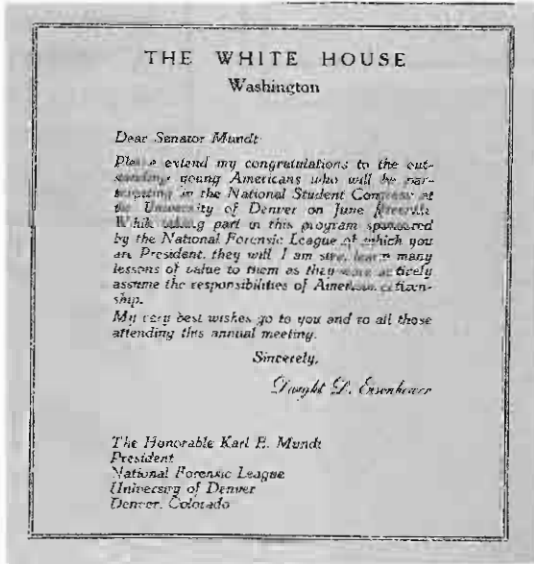 THE WHITE HOUSE
Washington
Dear Senator Mundt
Please extend my congratulations to the out-
standing young Americans who will be par-
ticipating in the National Student Congress at
the University of Denver on June
While taking part in this program sponsored
by the National Forensic League of which you
are President, they will I am sure, learn many
lessons of value to them as they more actively
assume the responsibilities of American citizen-
ship.
My very best wishes go to you and to all those
attending this annual meeting.
Sincerely,
Dwight D. Eisenhower
The Honorable Karl E. Mundt
President
National Forensic League
University of Denver
Denver, Colorado